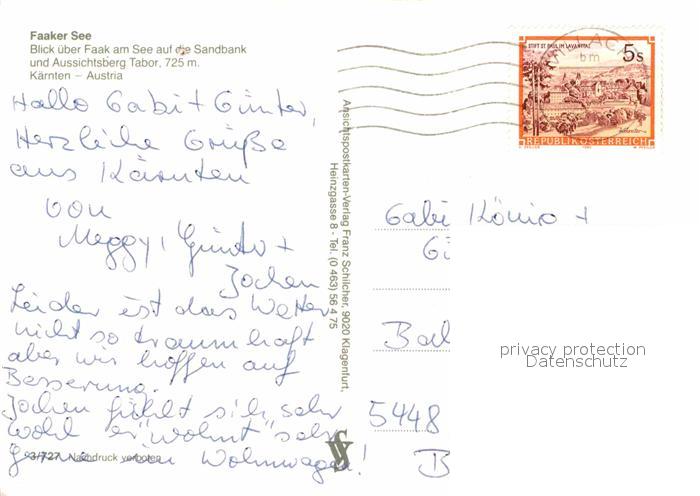 Faaker See
Blick über Faak am See auf die Sandbank
und Aussichtsberg Tabor, 725 m.
Kärnten – Austria
Hallo Gabi + Günter,
Herzliche Grüße
aus Kärnten
von
Meggy, Günter +
Jochen
Leider ist das Wetter
nicht so traumhaft
aber wir hoffen auf
Besserung.
Jochen fühlt sich sehr
wohl er "wohnt" sehr
gerne im Wohnwagen!
3/727 Nachdruck verboten
Ansichtspostkarten-Verlag Franz Schilcher, 9020 Klagenfurt,
Heinzgasse 8 - Tel. (0 463) 56 4 75
STIFT ST. PAUL IM LAVANTTAL
5s
REPUBLIK ÖSTERREICH
VILLACH
bm
Gabi König +
Gü
5448
B
privacy protection
Datenschutz